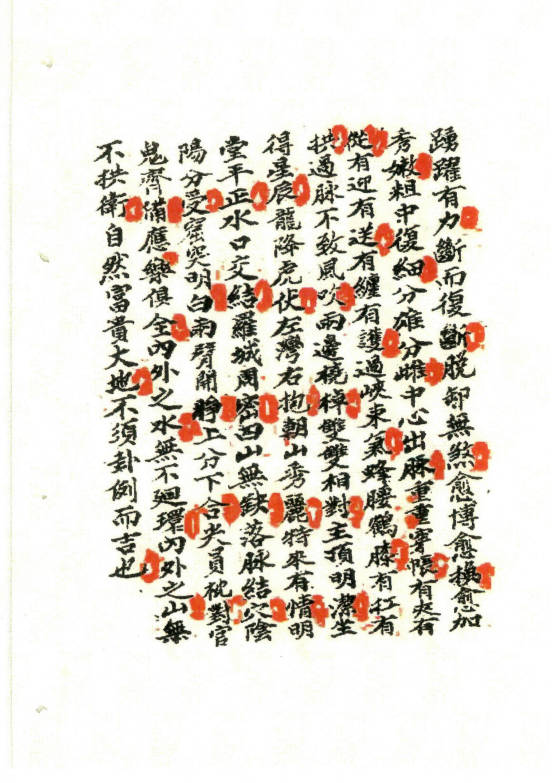 踴躍有力斷而復斷脫卸無煞愈博愈換愈加
秀嫩粗中復細分雄分雌中心出脉重重穿帳有夾有
從有迎有送有纏有護過峽束氣蜂腰鶴膝有扛有
拱過脉不致風吹兩邊橈棹雙雙相對主頂明潔坐
得星辰龍降虎伏左灣右抱朝山秀麗特來有情明
堂平正水口交結羅城周密凹山無缺落脉結穴陰
陽分受窩突明白兩臂開靜上分下合夫員枕對官
鬼齊備應樂俱全內外之水無不廻環內外之山無
不拱衛自然富貴大地不須卦例而吉也